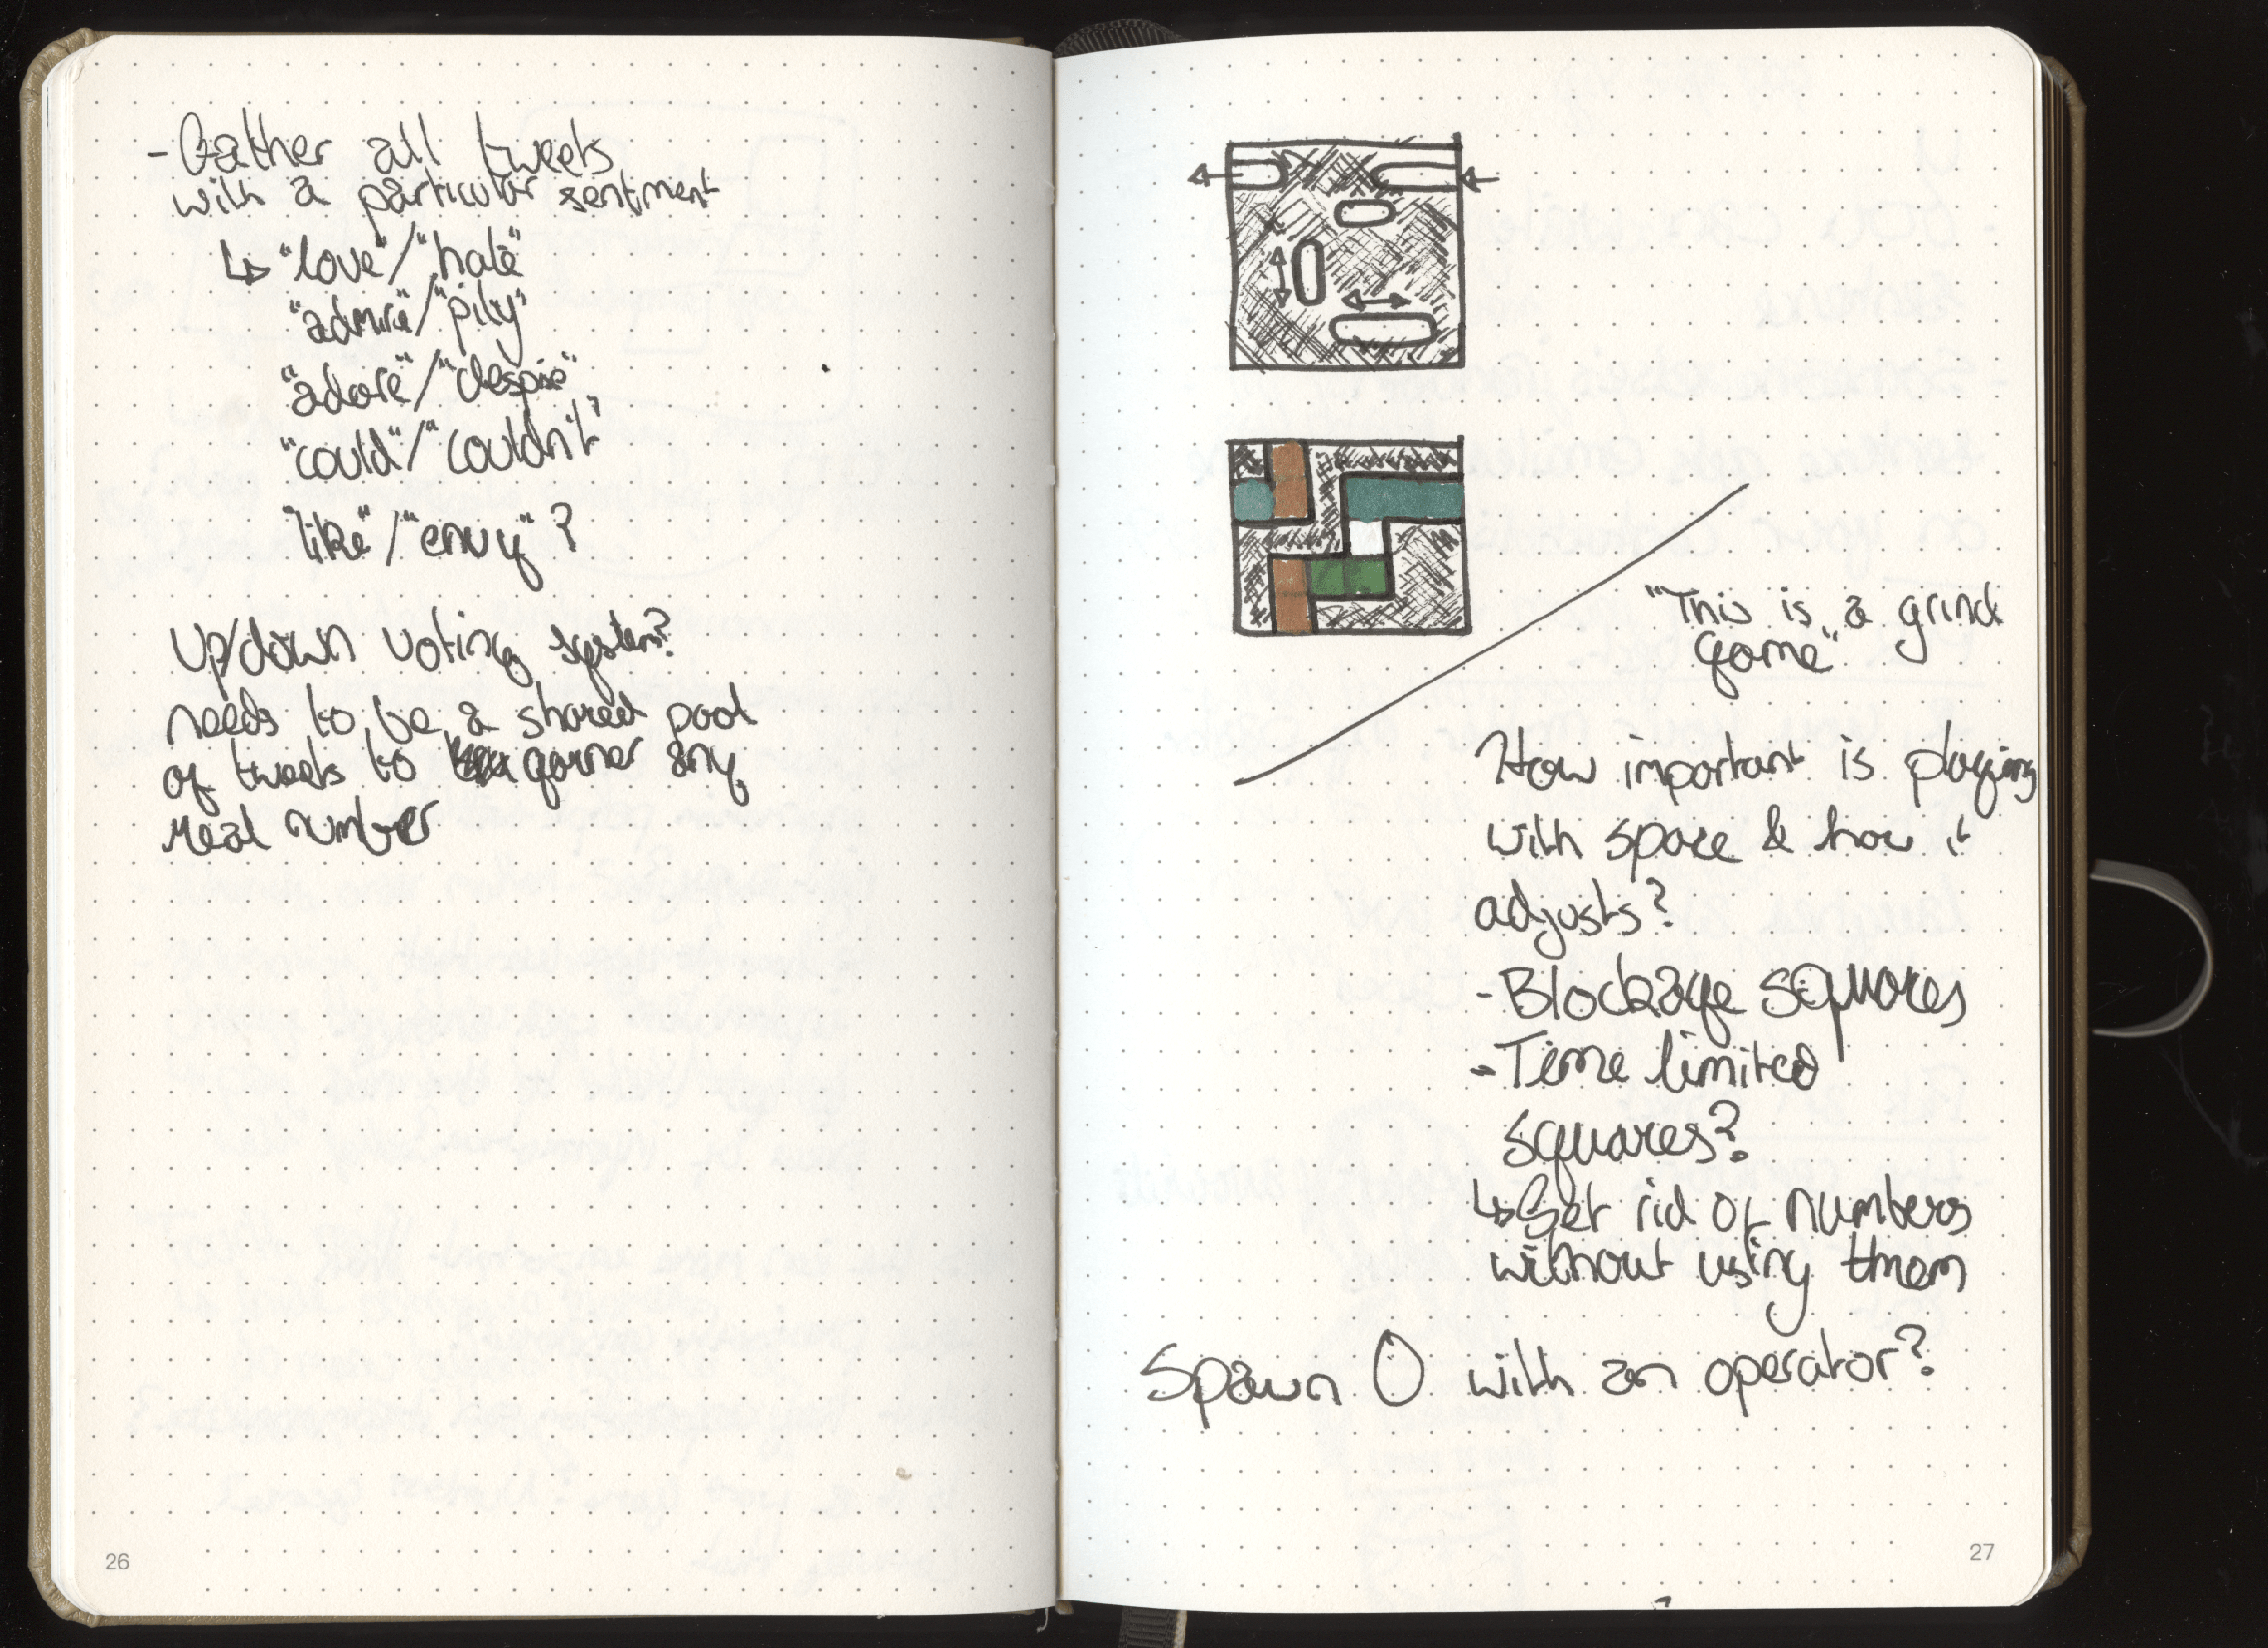 - Gather all tweets
with a particular sentiment
↳ "love"/"hate"
"admire"/"pity"
"adore"/"despise"
"could"/"couldn't"
"like"/"envy"?
Up/down voting system?
needs to be a shared pool
of tweets to garner any
real number
26
"This is a grind
game"
How important is playing
with space & how it
adjusts?
- Blockage squares
- Time limited
squares?
↳ Get rid of numbers
without using them
Spawn 0 with an operator?
27